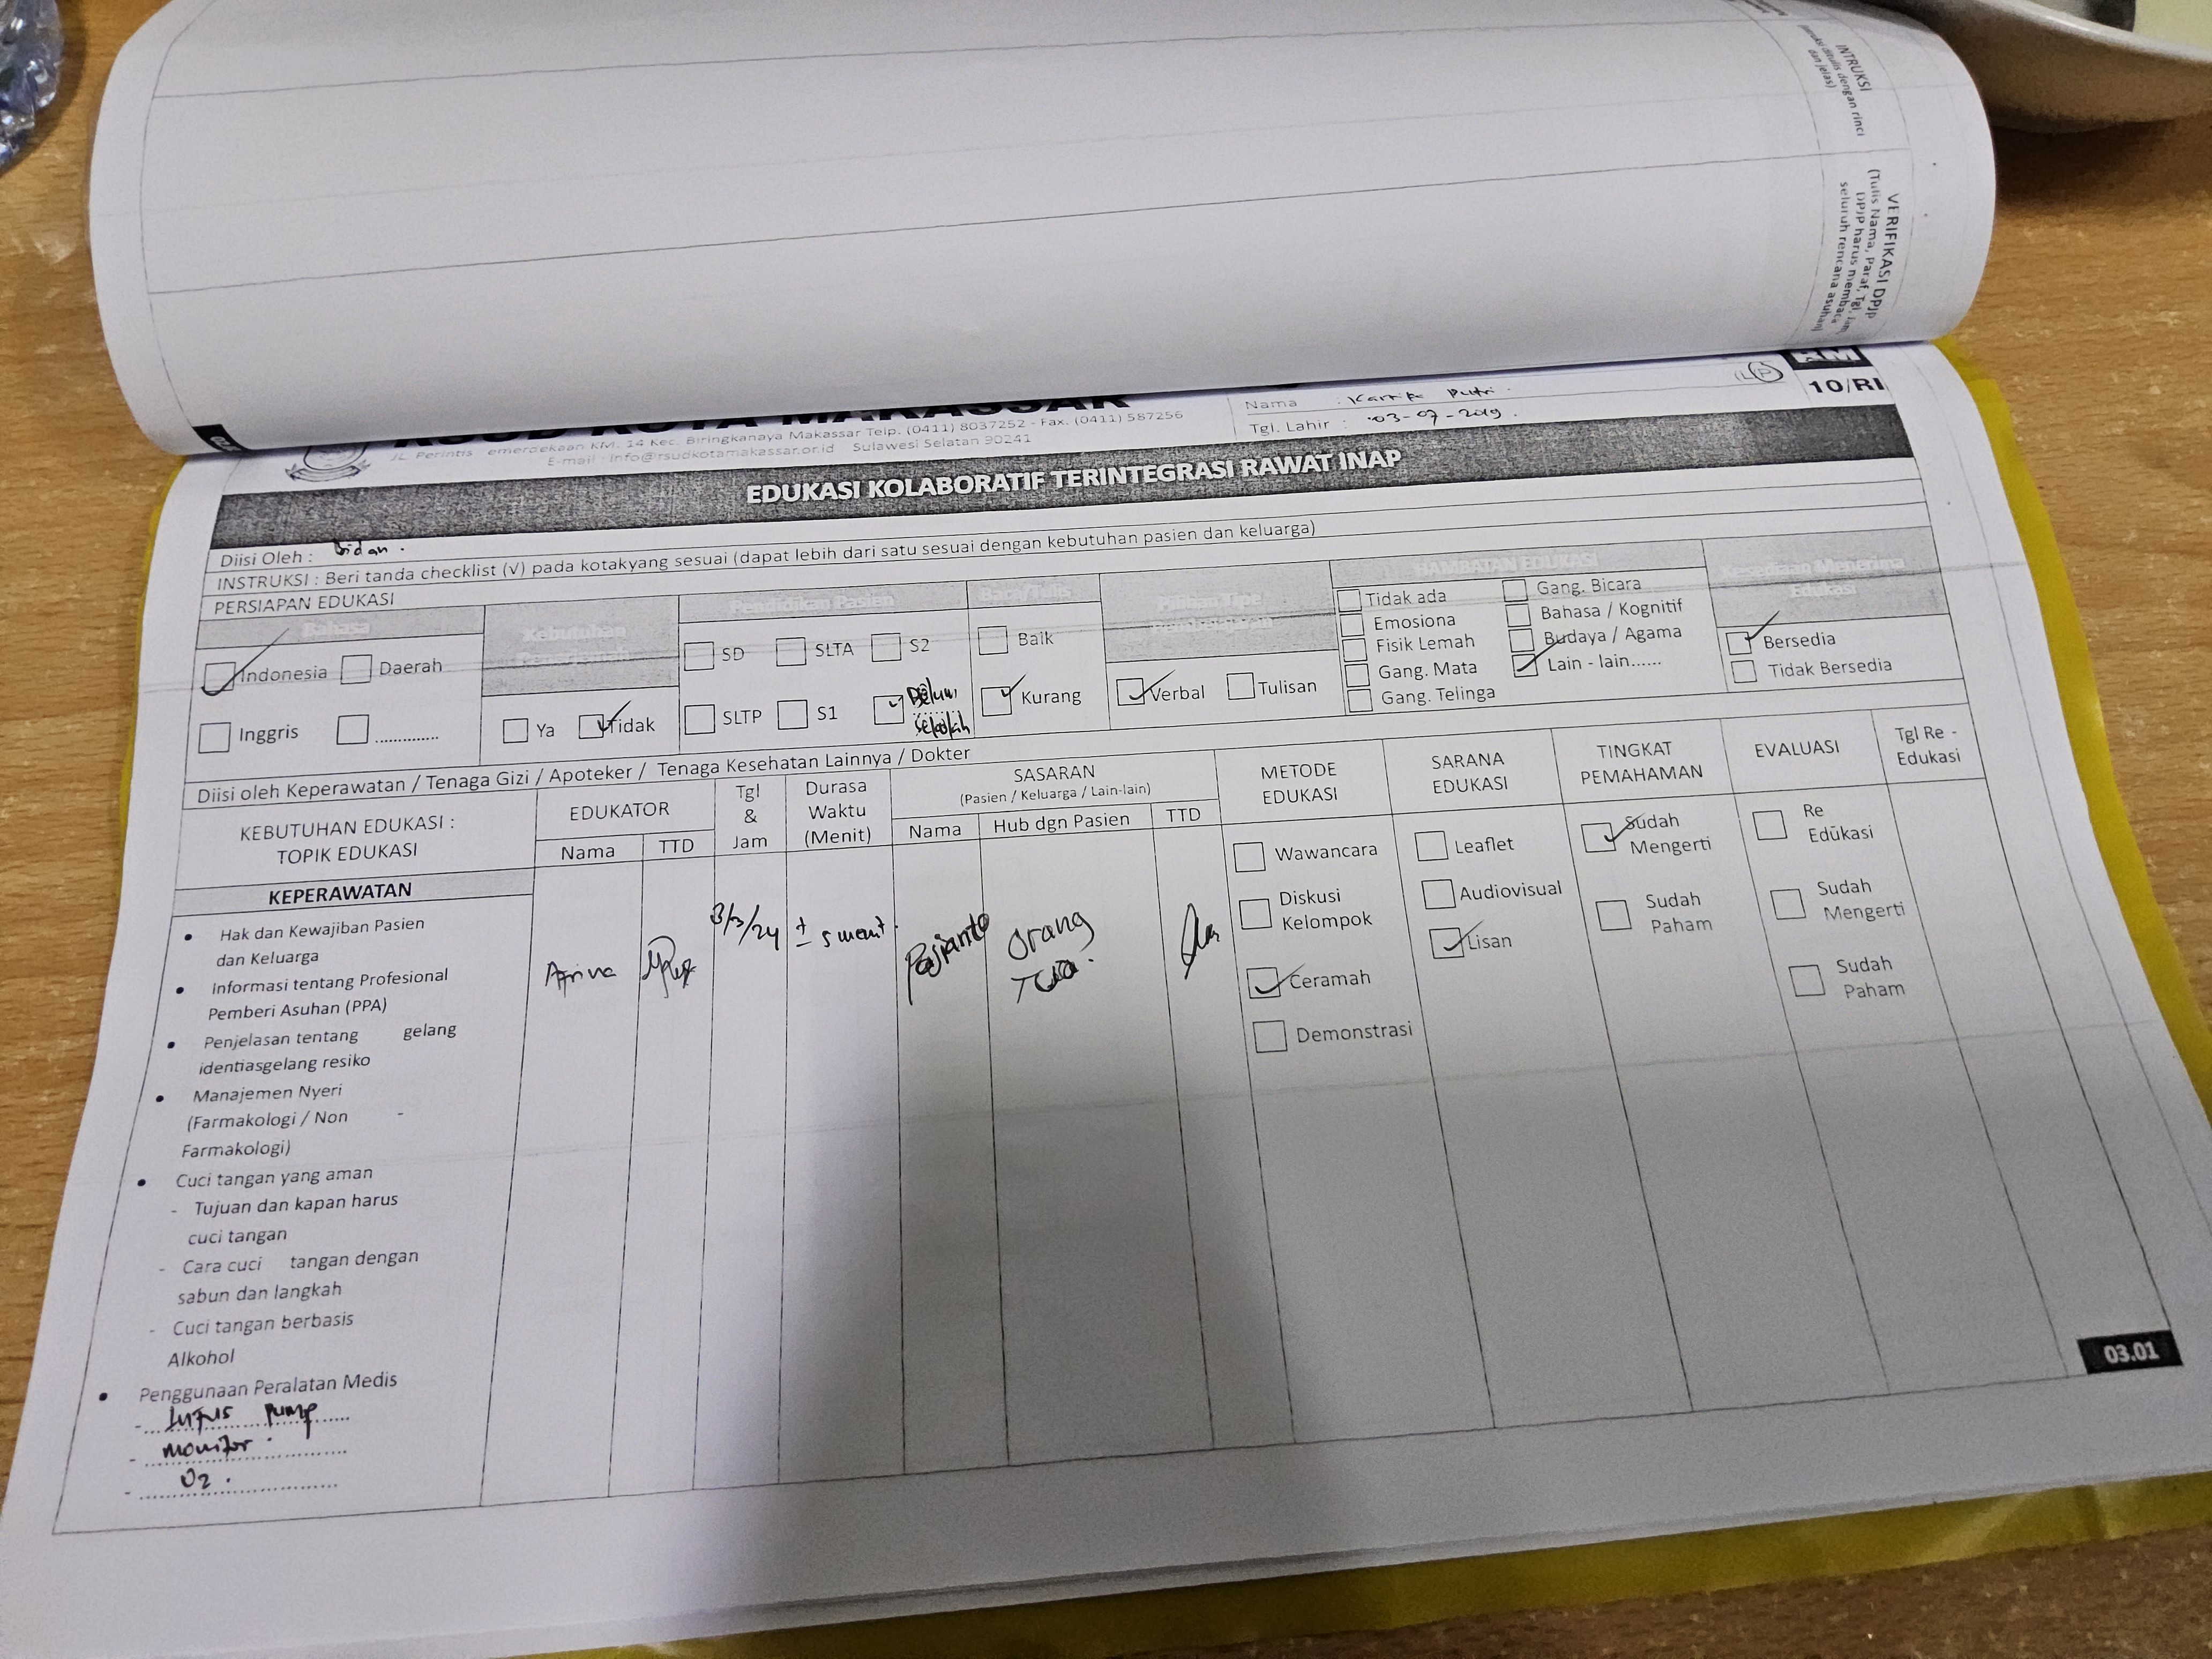 INTRUKSI
dan jelas)
VERIFIKASI DPJP
(Tulis Nama, Paraf, Tgl, Jam
(DPJP harus membaca
seluruh rencana asuhan)
RM
10/RI
RSUD KOTA MAKASSAR
JL. Perintis emerdekaan KM. 14 Kec. Biringkanaya Makassar Telp. (0411) 8037252 - Fax. (0411) 587256
Sulawesi Selatan 90241
E-mail : info@rsudkotamakassar.or.id
Nama : Putri
(L/P)
Tgl. Lahir : 03-07-2019
EDUKASI KOLABORATIF TERINTEGRASI RAWAT INAP
Diisi Oleh : Bidan.
INSTRUKSI : Beri tanda checklist (√) pada kotakyang sesuai (dapat lebih dari satu sesuai dengan kebutuhan pasien dan keluarga)
PERSIAPAN EDUKASI
Bahasa
Indonesia Daerah
Inggris ..............
Kebutuhan
Ya Tidak
Pendidikan Pasien
SD SLTA S2
SLTP S1 Belum sekolah
Baca/Tulis
Baik
Kurang
Pilihan Tipe
Pembelajaran
Verbal Tulisan
HAMBATAN EDUKASI
Tidak ada Gang. Bicara
Emosiona Bahasa / Kognitif
Fisik Lemah Budaya / Agama
Gang. Mata Lain - lain......
Gang. Telinga
Kesediaan Menerima
Edukasi
Bersedia
Tidak Bersedia
Diisi oleh Keperawatan / Tenaga Gizi / Apoteker / Tenaga Kesehatan Lainnya / Dokter
KEBUTUHAN EDUKASI :
TOPIK EDUKASI
EDUKATOR
Nama TTD
Tgl
&
Jam
Durasa
Waktu
(Menit)
SASARAN
(Pasien / Keluarga / Lain-lain)
Nama Hub dgn Pasien TTD
METODE
EDUKASI
SARANA
EDUKASI
TINGKAT
PEMAHAMAN
EVALUASI
Tgl Re -
Edukasi
KEPERAWATAN
• Hak dan Kewajiban Pasien
dan Keluarga
• Informasi tentang Profesional
Pemberi Asuhan (PPA)
• Penjelasan tentang gelang
identiasgelang resiko
• Manajemen Nyeri
(Farmakologi / Non -
Farmakologi)
• Cuci tangan yang aman
- Tujuan dan kapan harus
cuci tangan
- Cara cuci tangan dengan
sabun dan langkah
- Cuci tangan berbasis
Alkohol
• Penggunaan Peralatan Medis
- Infus pump
- monitor
- O2.
± 5 menit
Orang
Tua.
Wawancara
Diskusi
Kelompok
Ceramah
Demonstrasi
Leaflet
Audiovisual
Lisan
Sudah
Mengerti
Sudah
Paham
Re
Edukasi
Sudah
Mengerti
Sudah
Paham
03.01